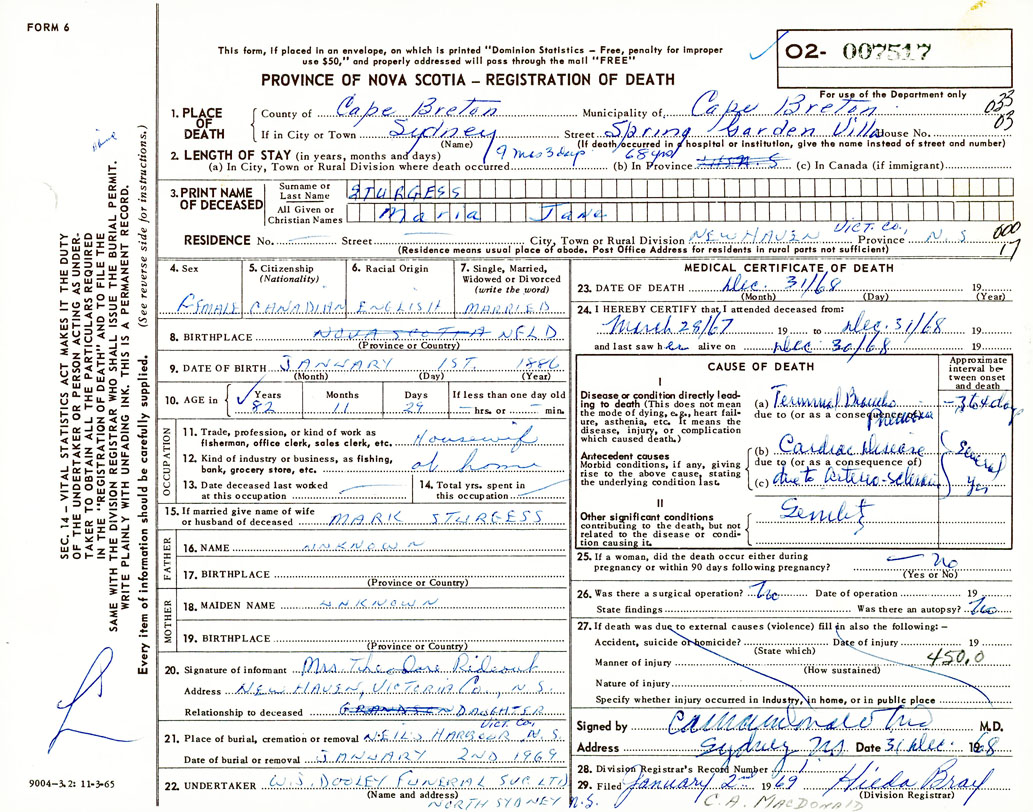 FORM 6
This form, if placed in an envelope, on which is printed "Dominion Statistics – Free, penalty for improper
use $50," and properly addressed will pass through the mail "FREE"
PROVINCE OF NOVA SCOTIA – REGISTRATION OF DEATH
O2- 007517
For use of the Department only
033
03
1. PLACE OF DEATH County of Cape Breton Municipality of Cape Breton
If in City or Town Sydney Street Spring Garden Villa House No.
(Name) (If death occurred in a hospital or institution, give the name instead of street and number)
2. LENGTH OF STAY (in years, months and days)
(a) In City, Town or Rural Division where death occurred 9 mos 3 days (b) In Province 68 yrs (c) In Canada (if immigrant)
3. PRINT NAME OF DECEASED Surname or Last Name STURGESS
All Given or Christian Names Maria Jane
RESIDENCE No. Street City, Town or Rural Division NEW HAVEN VICT. CO., Province N.S.
(Residence means usual place of abode. Post Office Address for residents in rural parts not sufficient)
000
17
4. Sex 5. Citizenship (Nationality) 6. Racial Origin 7. Single, Married, Widowed or Divorced (write the word)
FEMALE CANADIAN ENGLISH MARRIED
8. BIRTHPLACE NOVA SCOTIA NFLD
(Province or Country)
9. DATE OF BIRTH JANUARY 1ST. 1886
(Month) (Day) (Year)
10. AGE in Years Months Days If less than one day old
82 11 29 hrs. or min.
OCCUPATION
11. Trade, profession, or kind of work as fisherman, office clerk, sales clerk, etc. Housewife
12. Kind of industry or business, as fishing, bank, grocery store, etc. at home
13. Date deceased last worked at this occupation
14. Total yrs. spent in this occupation
15. If married give name of wife or husband of deceased MARK STURGESS
FATHER
16. NAME UNKNOWN
17. BIRTHPLACE
(Province or Country)
MOTHER
18. MAIDEN NAME UNKNOWN
19. BIRTHPLACE
(Province or Country)
20. Signature of informant Mrs. Theodore Rideout
Address NEW HAVEN, VICTORIA CO., N.S.
Relationship to deceased GRANDSON DAUGHTER
21. Place of burial, cremation or removal NEILS HARBOUR VICT. CO. N.S.
Date of burial or removal JANUARY 2ND 1969
22. UNDERTAKER W.J. DOOLEY FUNERAL SVC. LTD
(Name and address) NORTH SYDNEY N.S.
MEDICAL CERTIFICATE OF DEATH
23. DATE OF DEATH Dec. 31/68 19
(Month) (Day) (Year)
24. I HEREBY CERTIFY that I attended deceased from:
March 28/67 19 to Dec. 31/68 19
and last saw her alive on Dec 30/68 19
CAUSE OF DEATH
Approximate interval between onset and death
I
Disease or condition directly leading to death (This does not mean the mode of dying, e.g., heart failure, asthenia, etc. It means the disease, injury, or complication which caused death.)
(a) Terminal Broncho Pneumonia – 3 to 4 days
due to (or as a consequence of)
Antecedent causes
Morbid conditions, if any, giving rise to the above cause, stating the underlying condition last.
(b) Cardiac Disease
due to (or as a consequence of)
(c) due to Arterio-sclerosis
Several Yrs
II
Other significant conditions contributing to the death, but not related to the disease or condition causing it. Senility
25. If a woman, did the death occur either during pregnancy or within 90 days following pregnancy? no
(Yes or No)
26. Was there a surgical operation? No Date of operation 19
State findings Was there an autopsy? No
27. If death was due to external causes (violence) fill in also the following: –
Accident, suicide or homicide? Date of injury 19
(State which)
Manner of injury 450.0
(How sustained)
Nature of injury
Specify whether injury occurred in industry, in home, or in public place
Signed by M.D.
Address Sydney NS Date 31 Dec. 1968
28. Division Registrar's Record Number 1
29. Filed January 2nd 1969 Hilda Bray
(Division Registrar)
C. A. MACDONALD
SEC. 14 – VITAL STATISTICS ACT MAKES IT THE DUTY
OF THE UNDERTAKER OR PERSON ACTING AS UNDER-
TAKER TO OBTAIN ALL THE PARTICULARS REQUIRED
IN THE "REGISTRATION OF DEATH" AND TO FILE THE
SAME WITH THE DIVISION REGISTRAR WHO SHALL ISSUE THE BURIAL PERMIT.
WRITE PLAINLY WITH UNFADING INK. THIS IS A PERMANENT RECORD.
Every item of information should be carefully supplied. (See reverse side for instructions.)
9004–3.2: 11-3-65